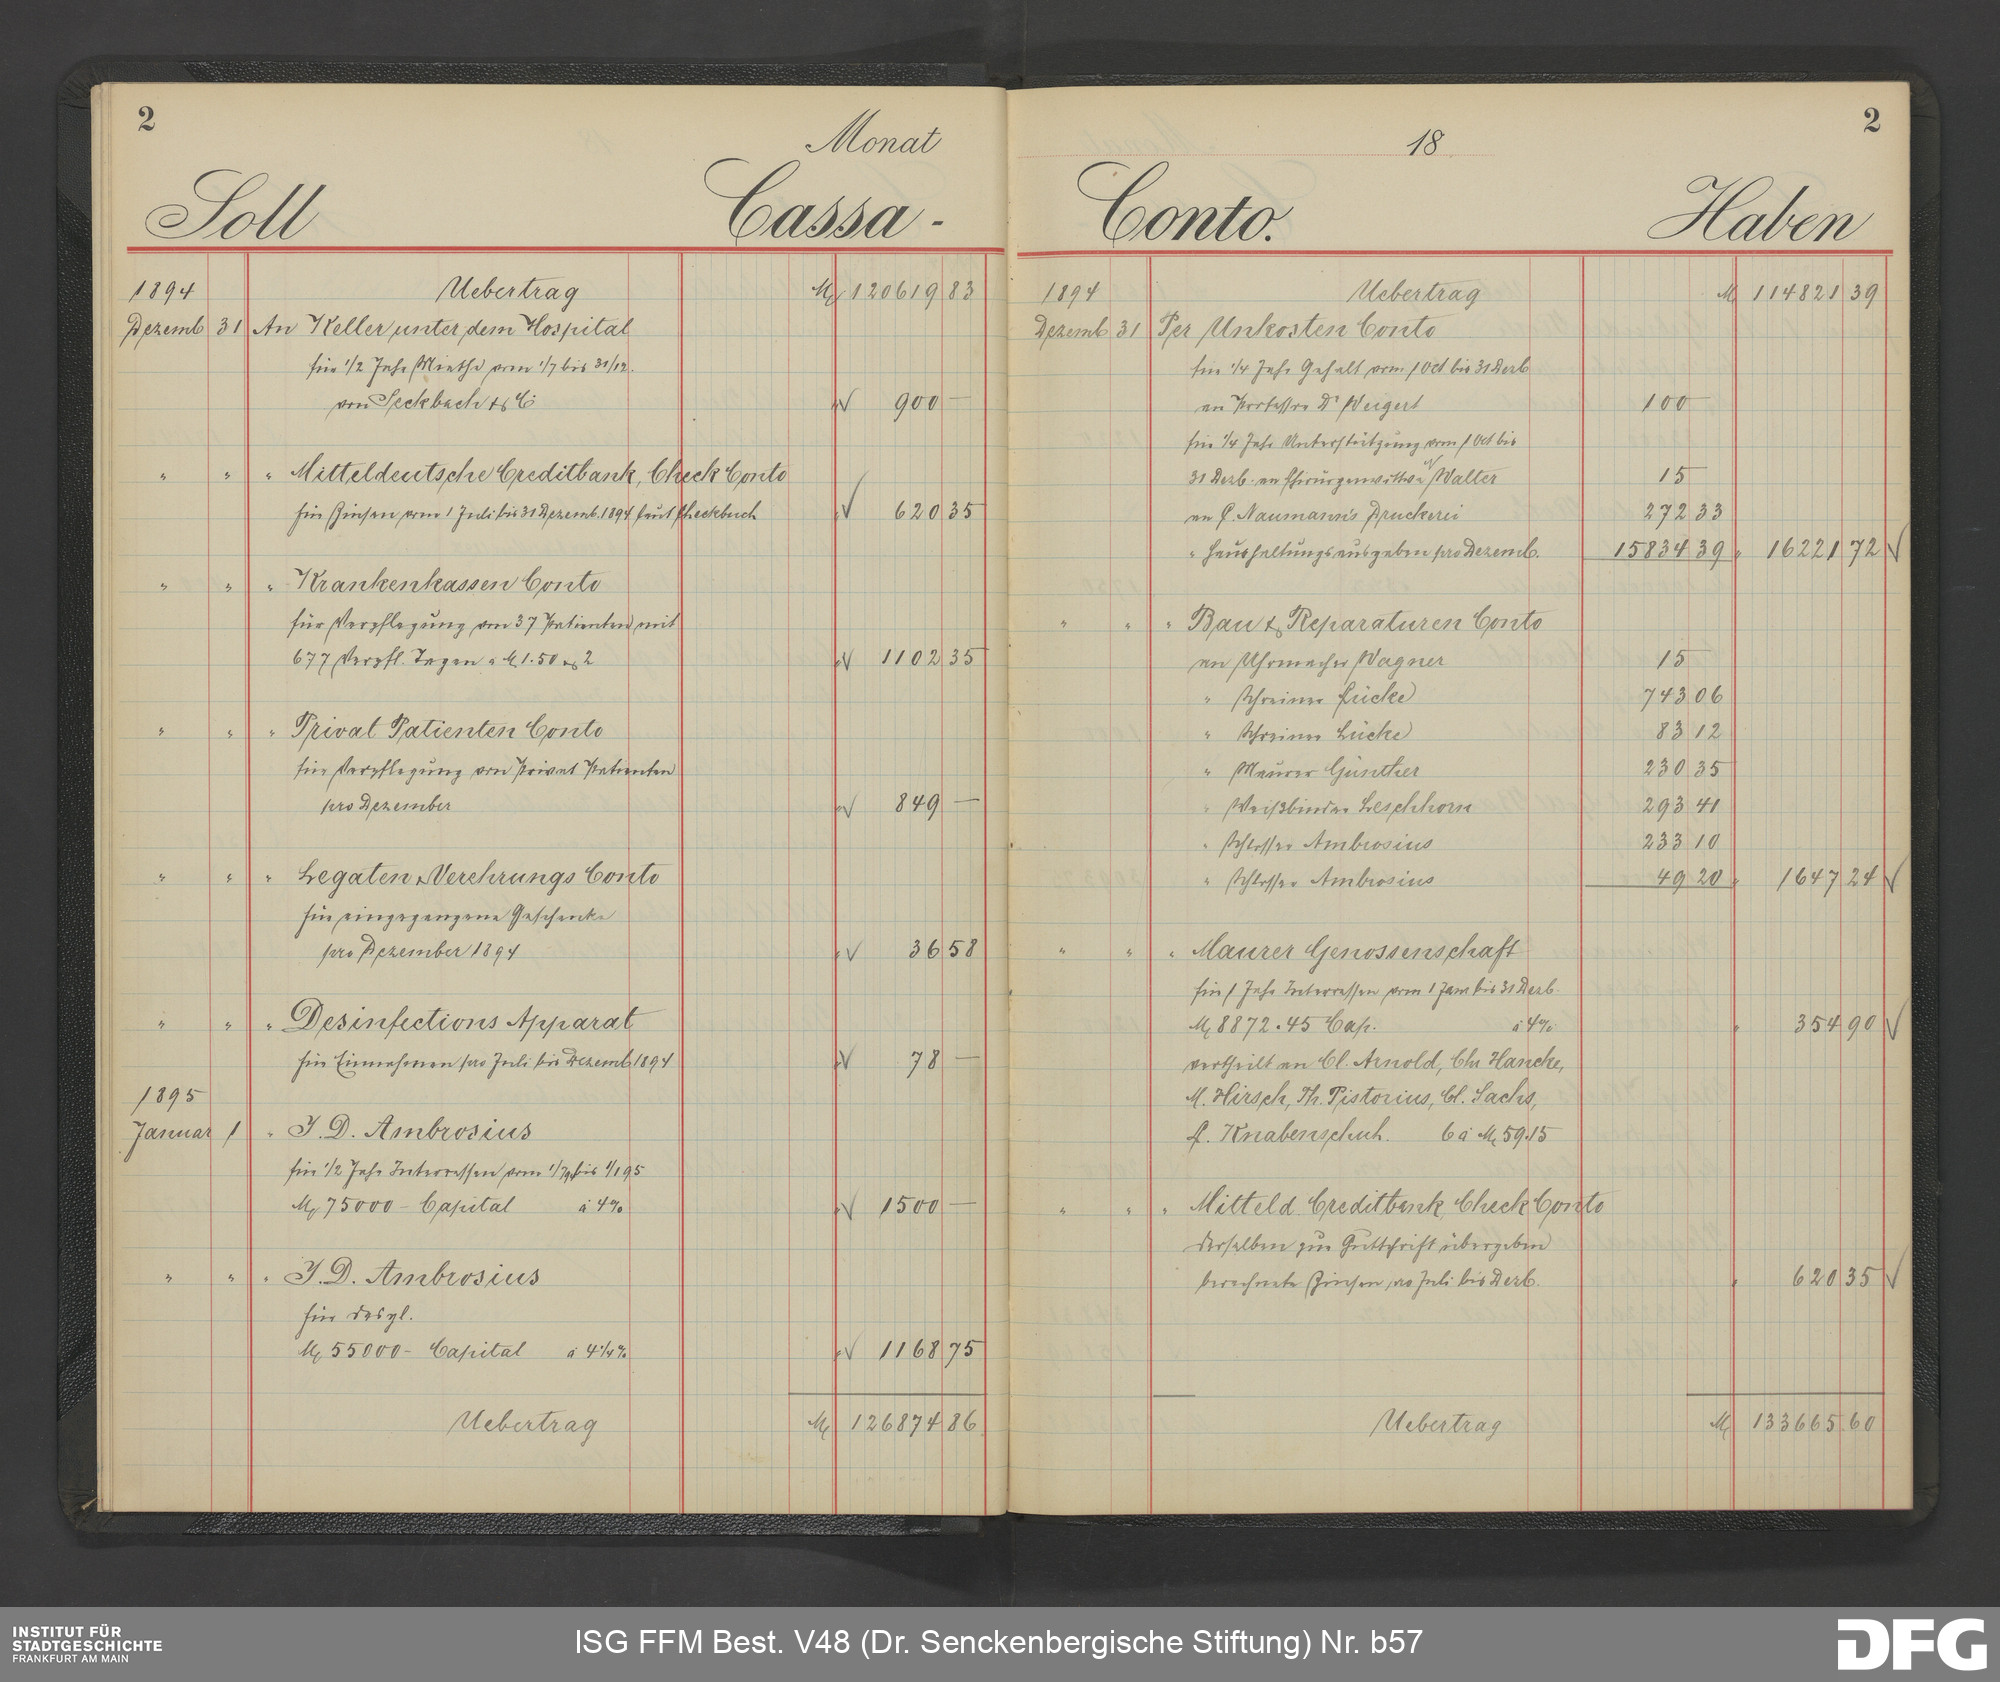 2
Monat
Soll
Cassa -
1894
Uebertrag
M 120619 83
Dezemb 31 An Keller unter dem Hospital
für 1/2 Jahr Miethe vom 1/7 bis 31/12.
von Seckbach & C
" 900 —
" " " Mitteldeutsche Creditbank, Check Conto
für Zinsen vom 1 Juli bis 31 Dezemb. 1894 laut Checkbuch
" 620 35
" " " Krankenkassen Conto
für Verpflegung von 37 Patienten mit
677 Verpfl. Tagen a M 1.50 & 2
" 1102 35
" " " Privat Patienten Conto
für Verpflegung von Privat Patienten
pro Dezember
" 849 —
" " " Legaten & Verehrungs Conto
für eingegangene Geschenke
pro Dezember 1894
" 36 58
" " " Desinfections Apparat
für Einnahmen pro Juli bis Dezemb 1894
" 78 —
1895
Januar 1 " J. D. Ambrosius
für 1/2 Jahr Interessen vom 1/7 94 bis 1/1 95
M 75000 - Capital á 4%
" 1500 —
" " " J. D. Ambrosius
für desgl.
M 55000 - Capital á 4 1/4 %
" 1168 75
Uebertrag
M 126874 86
2
18
Conto.
Haben
1894
Uebertrag
M 114821 39
Dezemb 31 Per Unkosten Conto
für 1/4 Jahr Gehalt vom 1 Oct bis 31 Dezb
an Professor Dr Weigert
100 —
für 1/4 Jahr Unterstützung vom 1 Oct bis
31 Dezb. an Chirurgenwittwe Walter
15 —
an C. Naumann's Druckerei
272 33
" Haushaltungsausgaben pro Dezemb.
15834 39 " 16221 72
" " " Bau & Reparaturen Conto
an Uhrmacher Wagner
15 —
" Schreiner Lücke
743 06
" Schreiner Lücke
83 12
" Maurer Günther
230 35
" Weißbinder Leschhorn
293 41
" Schlosser Ambrosius
233 10
" Schlosser Ambrosius
49 20 " 1647 24
" " " Maurer Genossenschaft
für 1 Jahr Interessen vom 1 Jan bis 31 Dezb.
M 8872.45 Cap. á 4%
" 354 90
vertheilt an Cl. Arnold, Chr Hancke,
M. Hirsch, Th. Pistorius, Cl. Sachs,
L. Knabenschuh. 6 á M 59.15
" " " Mitteld Creditbank Check Conto
derselben zur Gutschrift übergeben
berechnete Zinsen pro Juli bis Dezb.
" 620 35
Uebertrag
M 133665.60
INSTITUT FÜR
STADTGESCHICHTE
FRANKFURT AM MAIN
ISG FFM Best. V48 (Dr. Senckenbergische Stiftung) Nr. b57
DFG